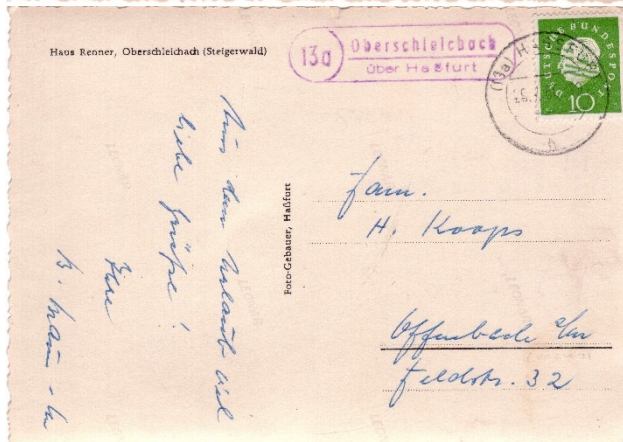 Haus Renner, Oberschleichach (Steigerwald)
13a
Oberschleichach
über Haßfurt
(13a) HASSFURT
DEUTSCHE BUNDESPOST
10
Aus dem Urlaub viel
liebe Grüße!
Ihre
Foto-Gebauer, Haßfurt
Fam.
H. Koops
Offenbach a/M
Feldstr. 32